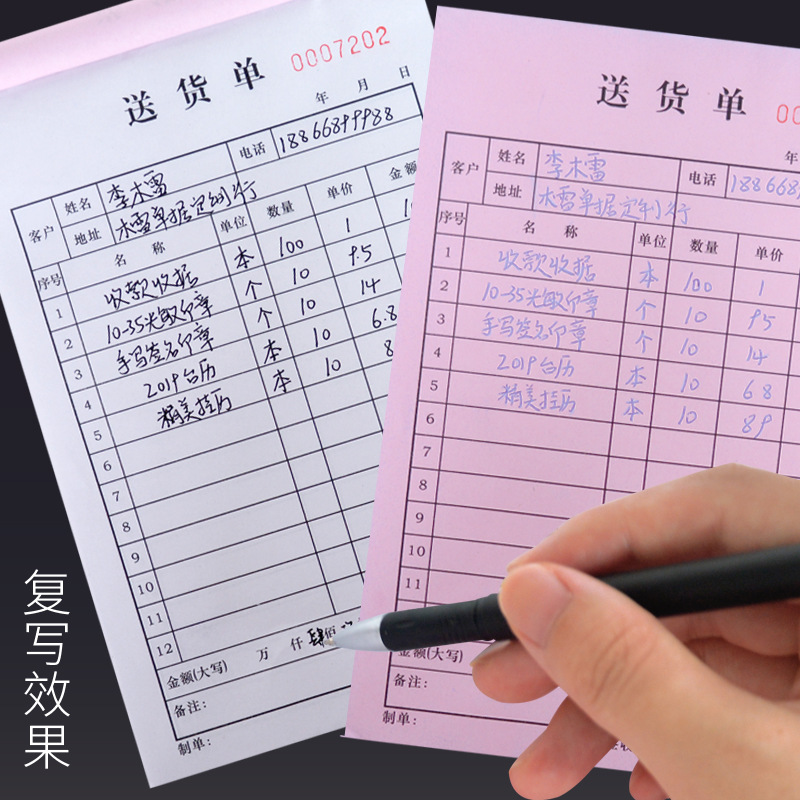 送货单 0007202
年 月 日
客户 姓名 李木雷 电话 18866899988
地址 木雷单据定制行
序号 名称 单位 数量 单价 金额
1 收款收据 本 100 1
2 10-35光敏印章 个 10 9.5
3 手写签名印章 个 10 14
4 2019台历 本 10 6.8
5 精美挂历 本 10 8
6
7
8
9
10
11
12
金额(大写) 万 仟 肆佰
备注:
制单:
送货单 00
年
客户 姓名 李木雷 电话 188668
地址 木雷单据定制行
序号 名称 单位 数量 单价
1 收款收据 本 100 1
2 10-35光敏印章 个 10 95
3 手写签名印章 个 10 14
4 2019台历 本 10 68
5 精美挂历 本 10 89
6
7
8
9
10
11
金额(大写)
备注:
制单:
复写效果